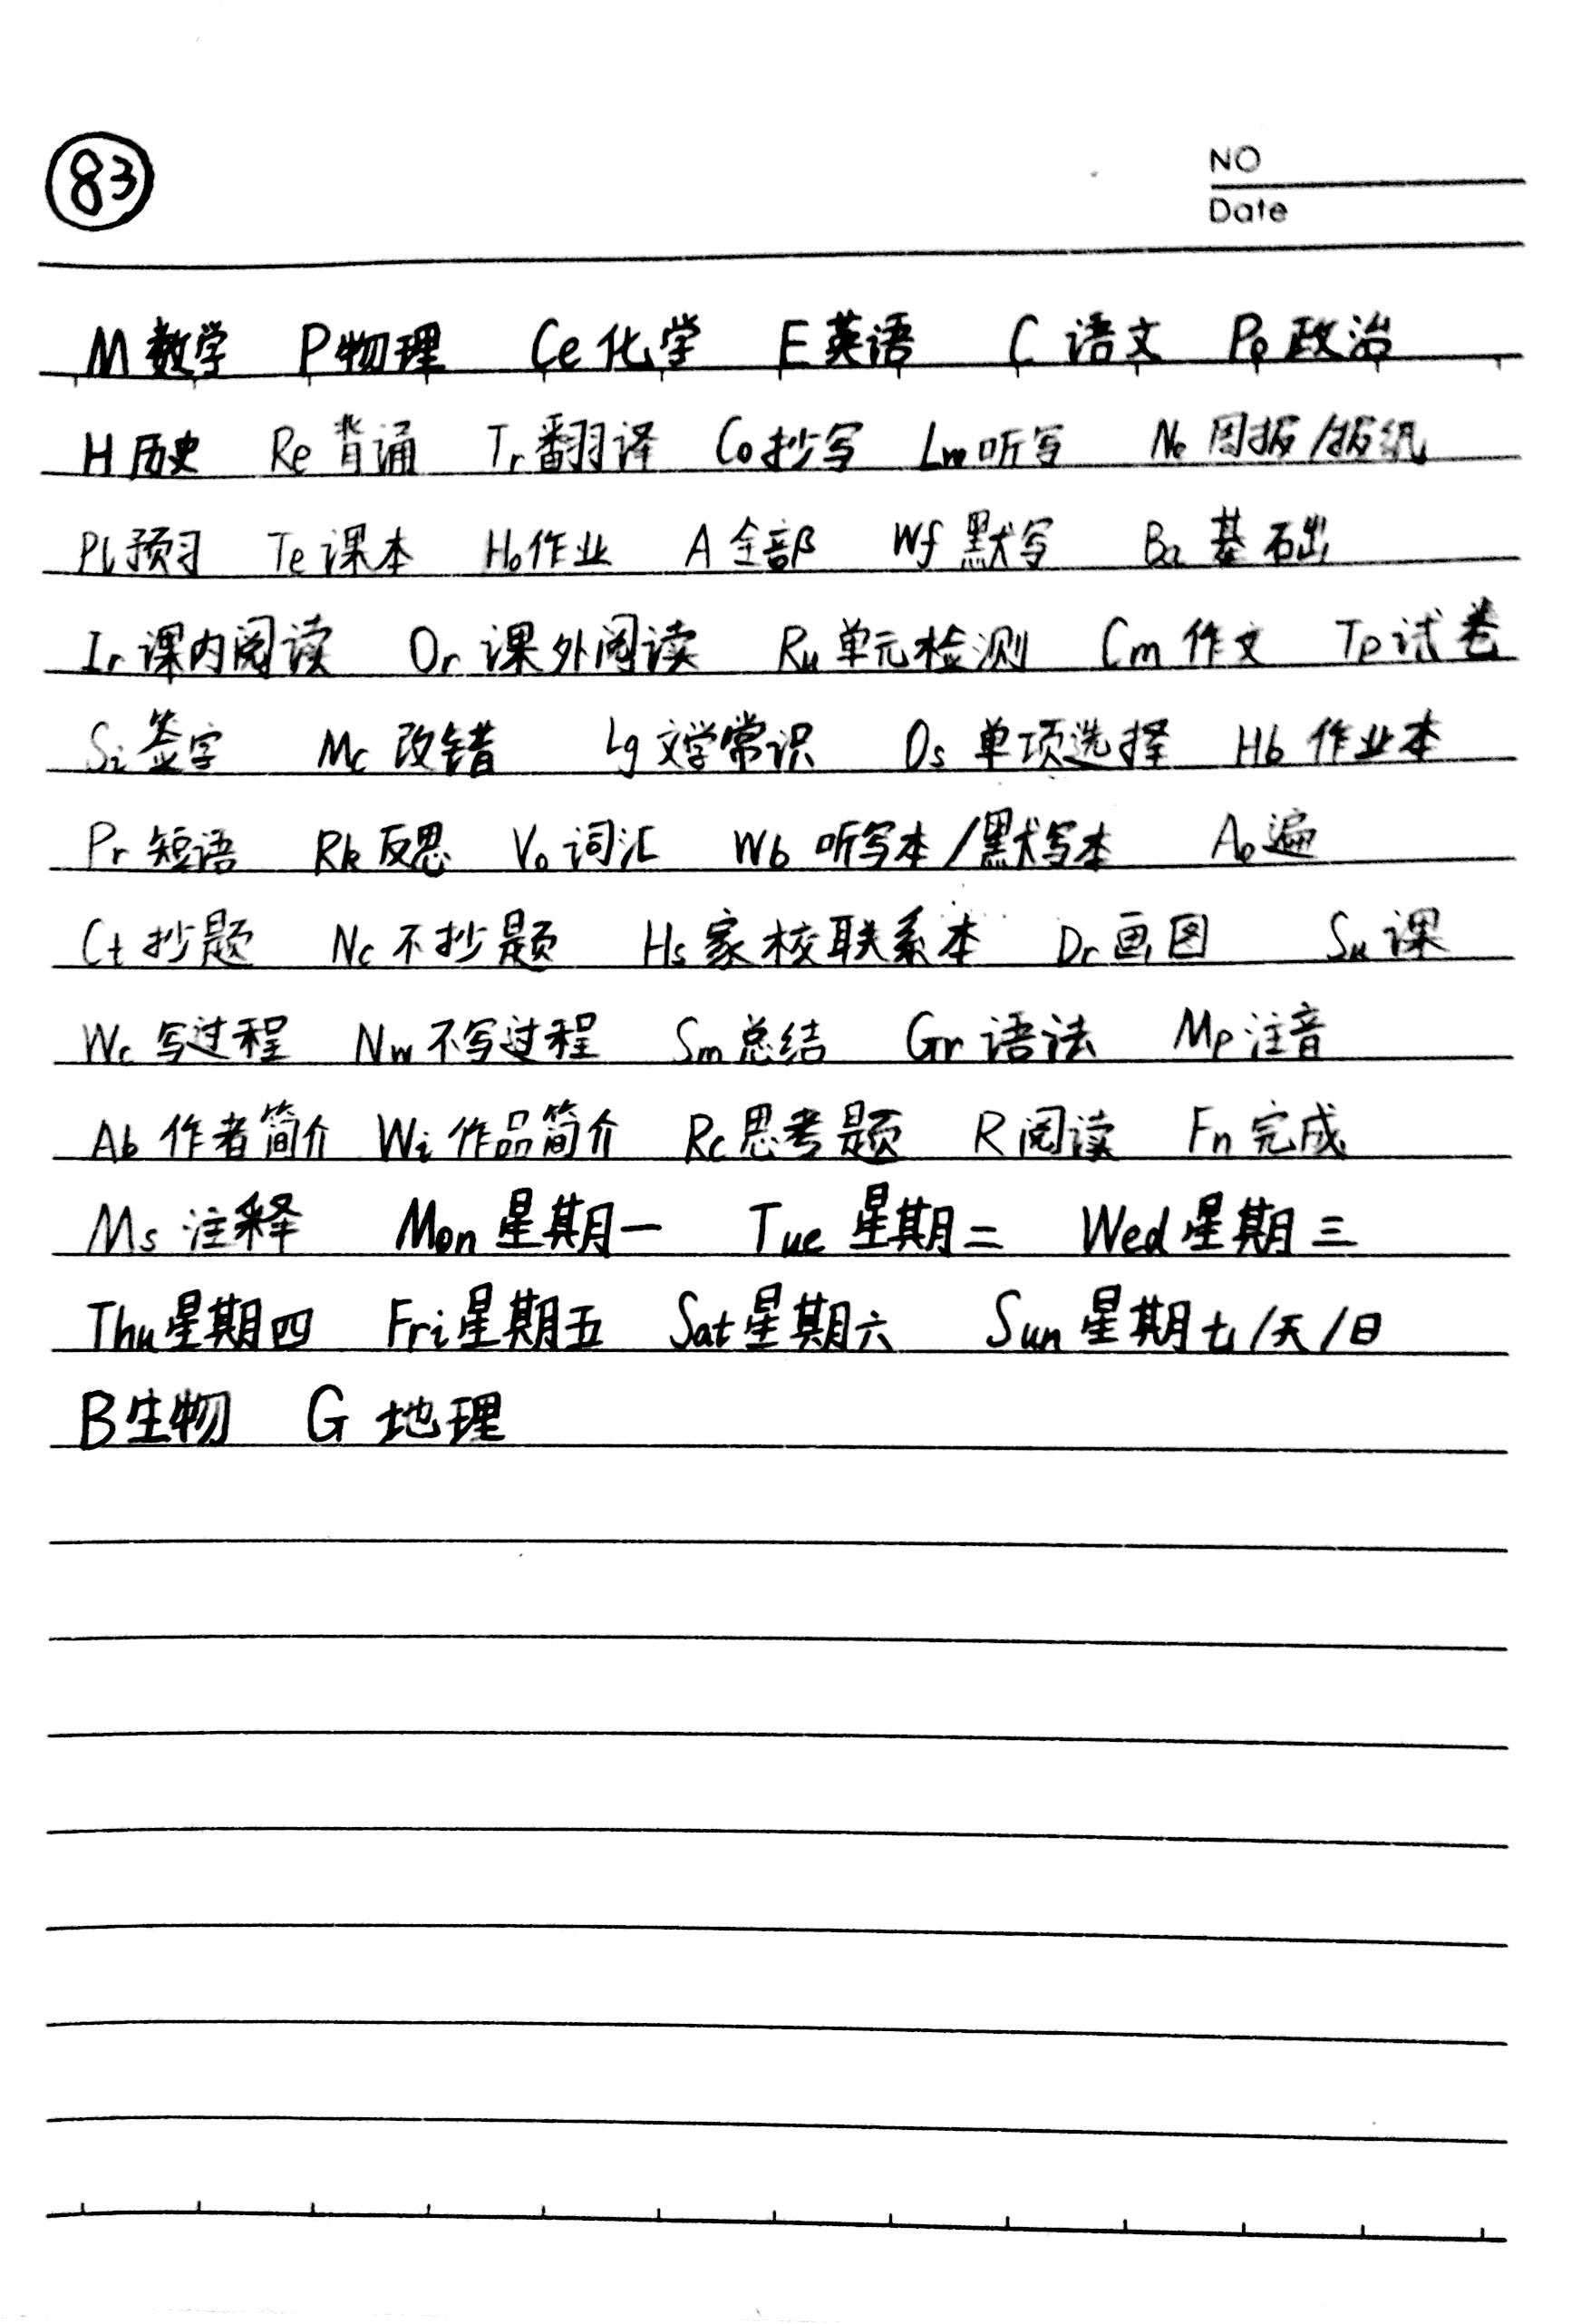 83
NO
Date
M 数学 P物理 Ce 化学 E英语 C 语文 Po 政治
H 历史 Re 背诵 Tr 翻译 Co 抄写 Lm 听写 Ne 周报/报纸
Pl 预习 Te 课本 Ho 作业 A 全部 Wf 默写 Ba 基础
Ir 课内阅读 Or 课外阅读 Ru 单元检测 Cm 作文 Tp 试卷
Si 签字 Mc 改错 Lg 文学常识 Os 单项选择 Hb 作业本
Pr 短语 Rk 反思 Vo 词汇 Wb 听写本/默写本 Ao 遍
Ct 抄题 Nc 不抄题 Hs 家校联系本 Dr 画图 Su 课
Wc 写过程 Nw 不写过程 Sm 总结 Gr 语法 Mp 注音
Ab 作者简介 Wi 作品简介 Rc 思考题 R 阅读 Fn 完成
Ms 注释 Mon 星期一 Tue 星期二 Wed 星期三
Thu 星期四 Fri 星期五 Sat 星期六 Sun 星期七/天/日
B 生物 G 地理